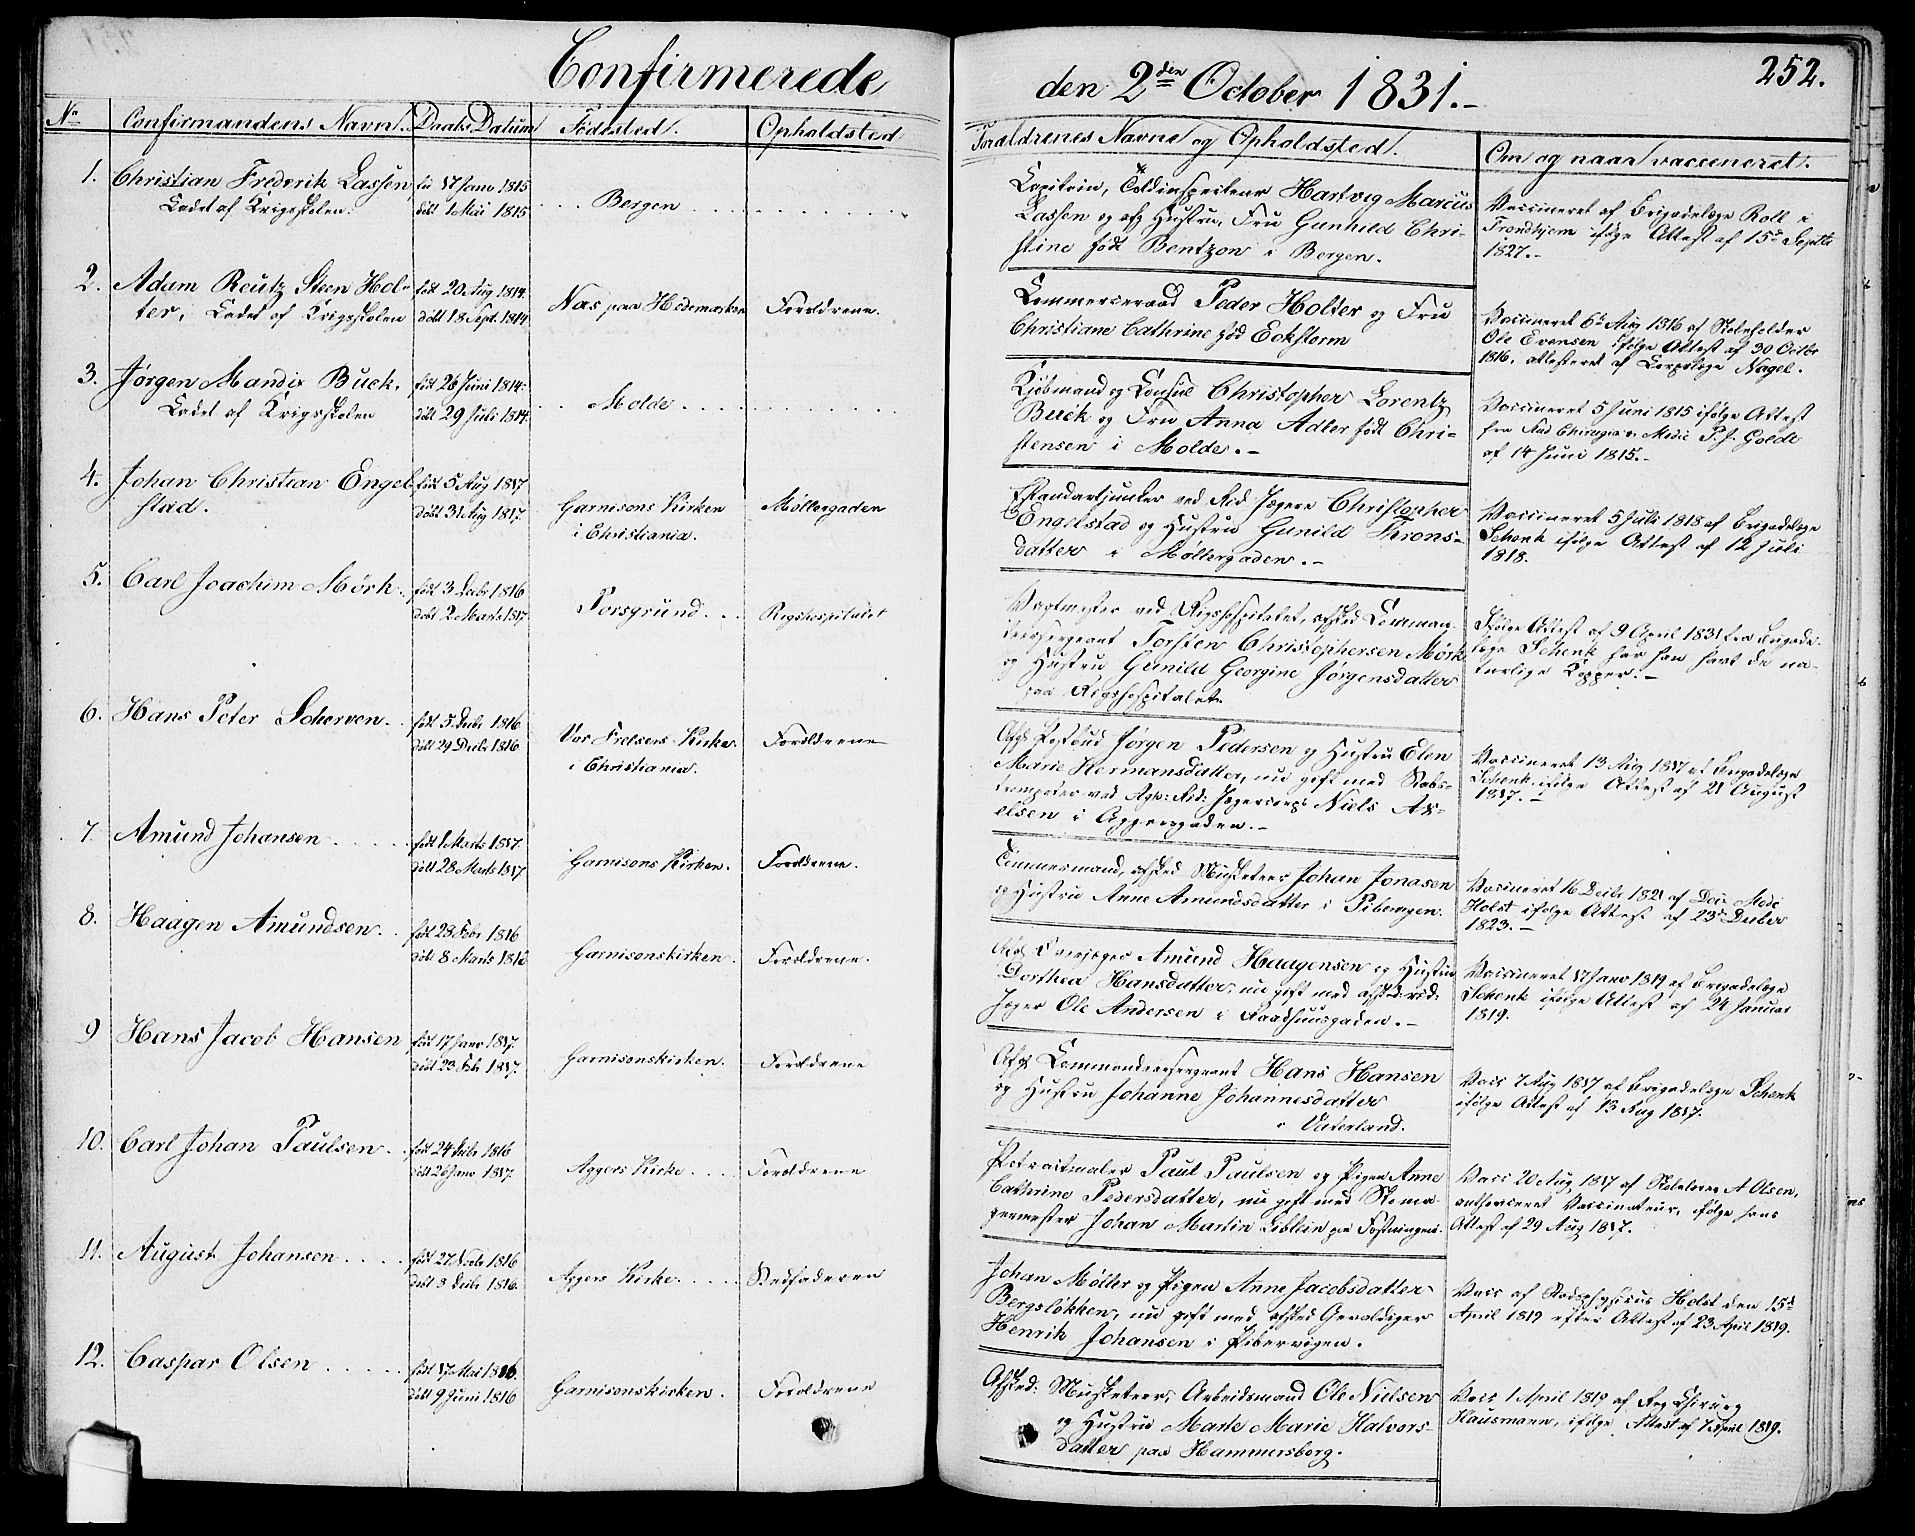 Confirmerede den 2den October 1831.-
252.
No Confirmandens Navn. Daabs Datum Födested. Opholdsted
Foraldrenes Navne og Opholdsted. Om og naar vaccineret.
1. Christian Frederik Lassen
Cadet af Krigsskolen.
fød 17 Janr 1815
döbt 1 Mai 1815
Bergen
Capitain, Toldinspecteur Hartvig Marcus
Lassen og afg. Hustru, Fru Gunhild Chri-
stine født Bentzon i Bergen.
Vaccineret af Brigadelæge Roll i
Trondhjem ifølge Attest af 15de Septbr
1827.-
2. Adam Reutz Steen Hol-
ter, Cadet af Krigsskolen
født 20 Aug 1814.
döbt 18 Sept. 1814
Næs paa Hedemarken
Forældrene.
Commerceraad Peder Holter og Fru
Christiane Cathrine fød Eckstorm
Vaccineret 6te Aug 1816 af
Ole Evensen ifølge Attest af 30 Octbr
1816, attesteret af Corpslæge Nagel.
3. Jørgen Mandix Buck,
Cadet af Krigsskolen
født 26 Juni 1814.
döbt 29 Juli 1814.
Molde
Kjøbmand og Consul Christopher Lorentz
Buck og Fru Anna Adler født Chri-
stensen i Molde.-
Vaccineret 5 Juni 1815 ifølge Attest
fra Chirurgiæ Medic P. J. Goldt
af 14 Juni 1815.-
4. Johan Christian Engel-
stad.
født 5 Aug 1817
döbt 31 Aug 1817.
Garnisons Kirken
i Christiania.
Møllergaden
Standartjunker ved Rid. Jægere Christopher
Engelstad og Hustru Gunild Throns-
datter i Møllergaden.-
Vaccineret 5 Juli 1818 af Brigadelæge
Schenk ifølge Attest af 12 Juli
1818.
5. Carl Joachim Mörk.
født 3 Decbr 1816
döbt 2 Marts 1817
Porsgrund
Rigshospitalet
Vagtmester ved Rigshospitalet, afsked Comman-
deersergeant Torsten Christophersen Mørk
og Hustru Gunild Georgine Jørgensdatter
paa Rigshospitalet.
Ifølge Attest af 9 April 1831 fra Brigade-
læge Schenk har han havt de na-
turlige Kopper.-
6. Hans Peter Scherven.
født 5 Decbr 1816
döbt 29 Decbr 1816
Vor Frelsers Kirke.
i Christiania.
Forældrene
Afg. Postbud Jørgen Pedersen og Hustru Elen
Marie Hermansdatter, nu gift med Stabs-
trompeter ved Agh: Rid: Jægercorps Niels Ax-
elsen i Aggersgaden.-
Vaccineret 13 Aug 1817 af Brigadelæge
Schenk ifølge Attest af 21 August
1817.-
7. Amund Johansen
født 1 Marts 1817.
döbt 28 Marts 1817
Garnisons Kirken.
Forældrene.
Tømmermand, afsked Musketeer Johan Jonasen
og Hustru Anne Amundsdatter i Pibervigen.
Vaccineret 16 Decbr 1821 af Doct. Medc
Holst ifølge Attest af 23de Decber
1823.-
8. Haagen Amundsen.
født 23 Febr 1816
döbt 8 Marts 1816
Garnisonskirken.
Forældrene.
Afg. Amund Haagensen og Hustru
Dorthea Hansdatter, nu gift med afsked. rid:
Jæger Ole Andersen i Raadhuusgaden.-
Vaccineret 17 Janr 1819 af Brigadelæge
Schenk ifølge Attest af 24 Januar
1819.
9 Hans Jacob Hansen
født 17 Janr 1817.
döbt 23 Febr 1817.
Garnisonskirken.
Forældrene
Afg. Commandeersergeant Hans Hansen
og Hustru Johanne Johannesdatter
i Vaterland.
Vacc 7 Aug 1817 af Brigadelæge Schenk
ifølge Attest af 13 Aug 1817.
10. Carl Johan Paulsen.
født 24 Decbr 1816
döbt 26 Janr 1817.
Aggers Kirke
Forældrene
Potraitmaler Paul Paulsen og Pigen Anne
Cathrine Pedersdatter, nu gift med
Johan Martin Liblin paa Fæstningen.
Vacc 20 Aug 1817 af A Olsen,
authoriseret Vaccinateur, ifølge hans
Attest af 29 Aug 1817.
11. August Johansen
født 27 Novbr 1816
döbt 8 Decbr 1816.
Aggers Kirke.
Stedfaderen
Johan Møller og Pigen Anne Jacobsdatter
Bergsløkken, nu gift med afsked Gevaldiger
Henrik Johansen i Pibervigen.
Vacc af Stadsphysicus Holst den 15de
April 1819 efter Attest af 23 April 1819.
12. Caspar Olsen
født 17 Mai 1816.
döbt 9 Juni 1816
Garnisonskirken.
Forældrene
Afsked. Musketeer, Arbeidsmand Ole Nielsen
og Hustru Marte Marie Halvors-
datter paa Hammersborg.
Vacc 1 April 1819 af Reg Chirurg
Hausmann, ifølge Attest af 7 April 1819.